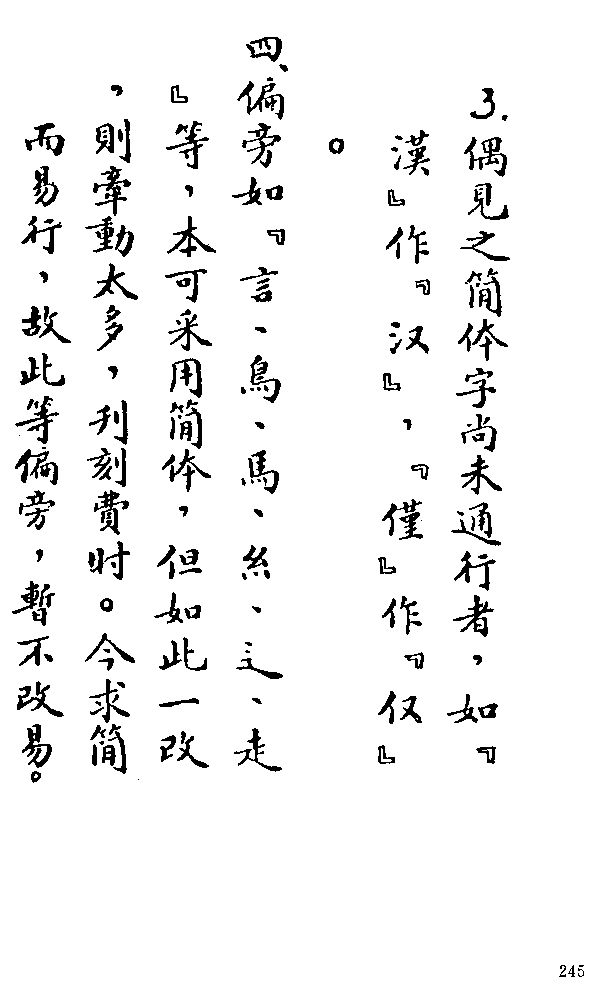 3.偶見之简体字尚未通行者，如『
漢』作『汉』，『僅』作『仅』
。
四、偏旁如『言、鳥、馬、糸、辶、走
』等，本可采用简体，但如此一改
，則牽動太多，刊刻費时。今求简
而易行，故此等偏旁，暫不改易。
245